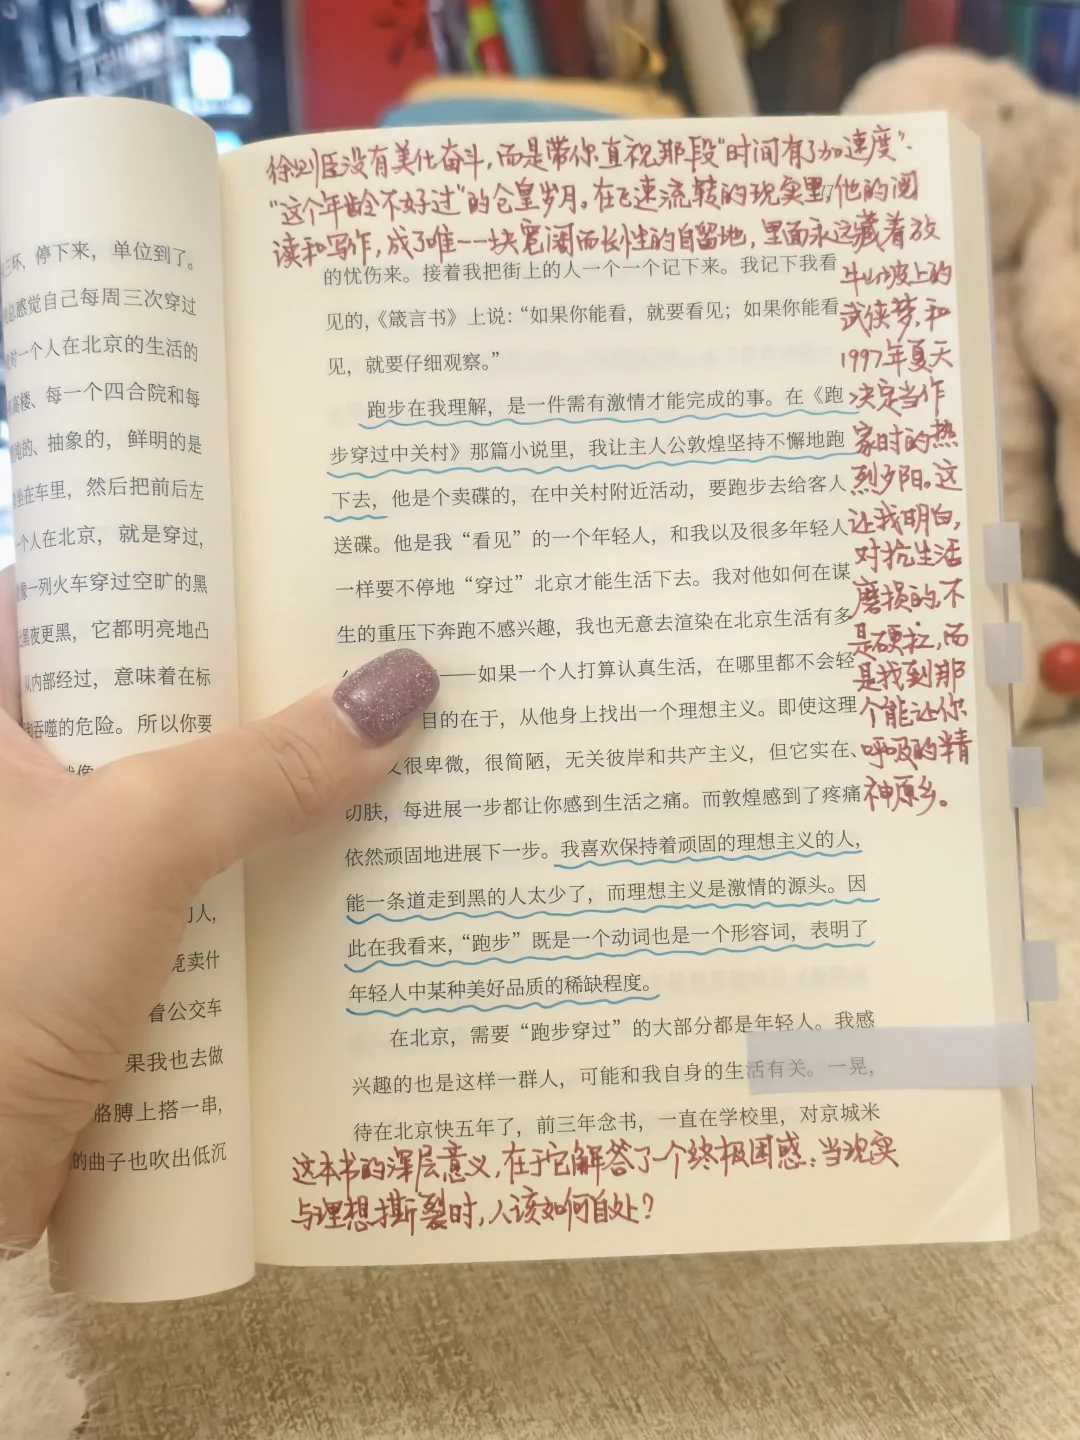 三环，停下来，单位到了。
总感觉自己每周三次穿过
一个人在北京的生活的
高楼、每一个四合院和每
的、抽象的，鲜明的是
坐在车里，然后把前后左
一个人在北京，就是穿过，
像一列火车穿过空旷的黑
黑夜更黑，它都明亮地凸
从内部经过，意味着在标
吞噬的危险。所以你要
人，
竟卖什
看公交车
果我也去做
胳膊上搭一串，
的曲子也吹出低沉
徐则臣没有美化奋斗，而是带你直视那段“时间有了加速度”、
“这个年龄不好过”的仓皇岁月。在飞速流转的现实里，他的阅
读和写作，成了唯一一块宽阔而长性的自留地，里面永远藏着放
牛山坡上的
武侠梦，和
1997年夏天
决定当作
家时的热
烈夕阳。这
让我明白，
对抗生活
磨损的，不
是硬扛，而
是找到那
个能让你
呼吸的精
神原乡。
的忧伤来。接着我把街上的人一个一个记下来。我记下我看
见的，《箴言书》上说：“如果你能看，就要看见；如果你能看
见，就要仔细观察。”
跑步在我理解，是一件需有激情才能完成的事。在《跑
步穿过中关村》那篇小说里，我让主人公敦煌坚持不懈地跑
下去，他是个卖碟的，在中关村附近活动，要跑步去给客人
送碟。他是我“看见”的一个年轻人，和我以及很多年轻人
一样要不停地“穿过”北京才能生活下去。我对他如何在谋
生的重压下奔跑不感兴趣，我也无意去渲染在北京生活有多
——如果一个人打算认真生活，在哪里都不会轻
目的在于，从他身上找出一个理想主义。即使这理
又很卑微，很简陋，无关彼岸和共产主义，但它实在、
切肤，每进展一步都让你感到生活之痛。而敦煌感到了疼痛
依然顽固地进展下一步。我喜欢保持着顽固的理想主义的人，
能一条道走到黑的人太少了，而理想主义是激情的源头。因
此在我看来，“跑步”既是一个动词也是一个形容词，表明了
年轻人中某种美好品质的稀缺程度。
在北京，需要“跑步穿过”的大部分都是年轻人。我感
兴趣的也是这样一群人，可能和我自身的生活有关。一晃，
待在北京快五年了，前三年念书，一直在学校里，对京城米
这本书的深层意义，在于它解答了一个终极困惑：当现实
与理想撕裂时，人该如何自处？